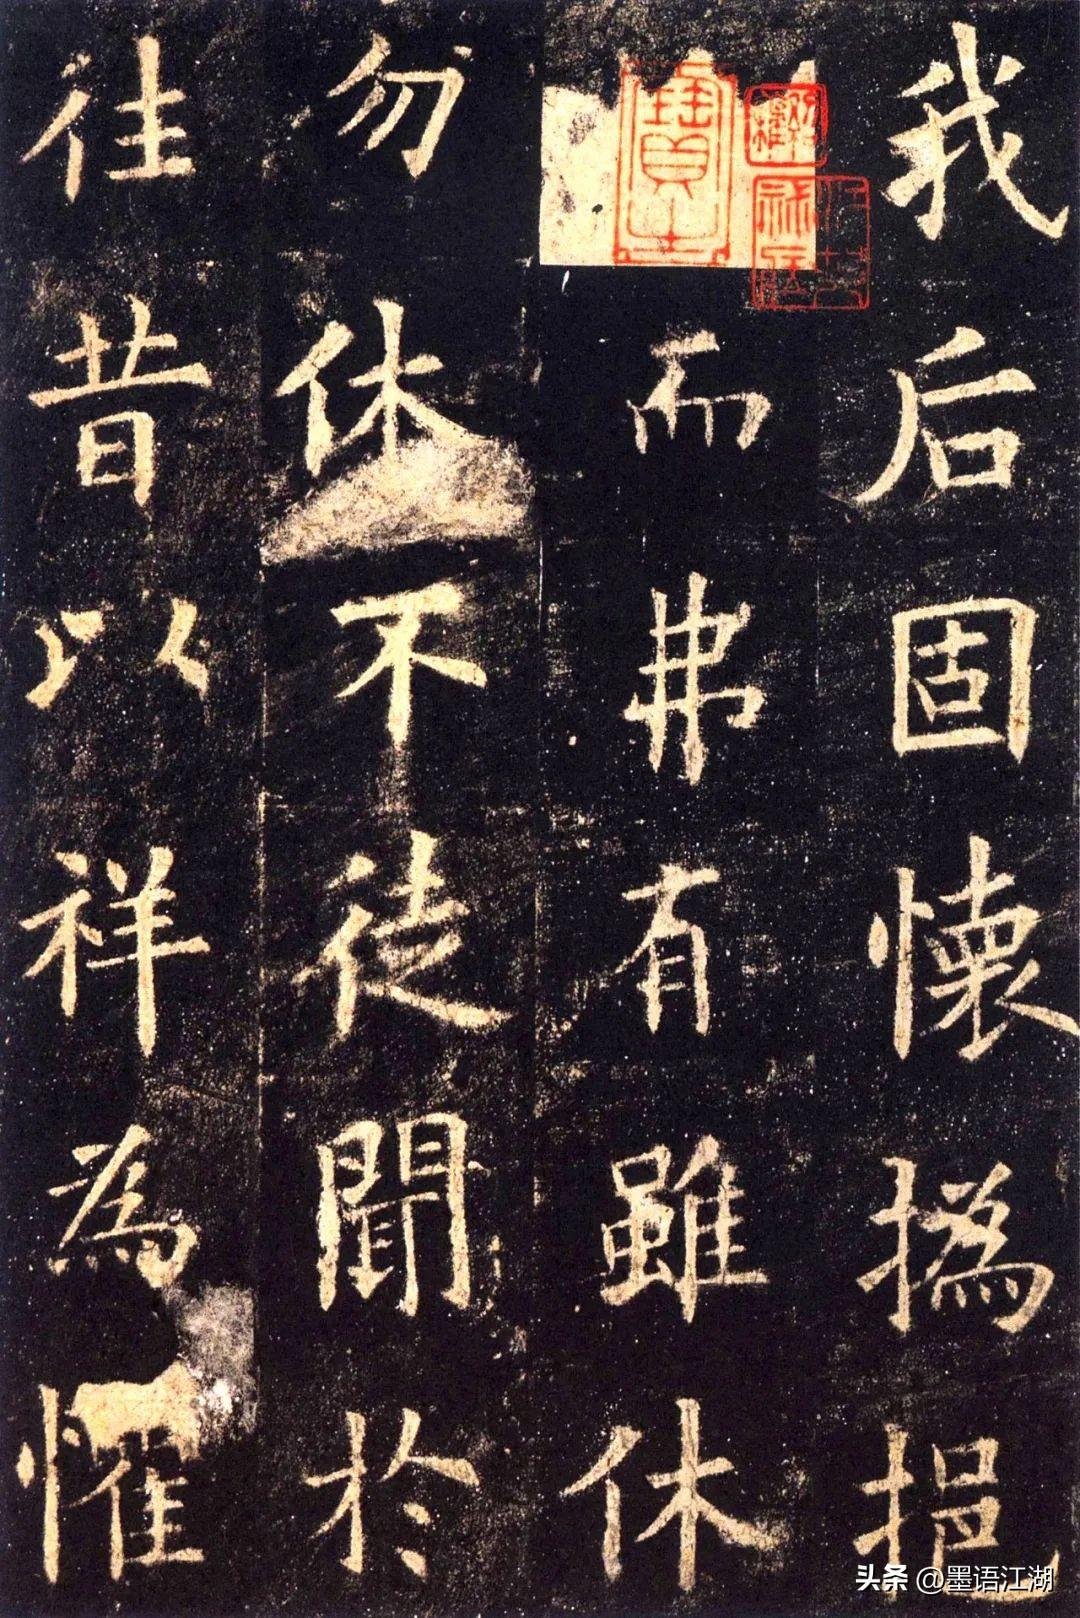 我后固懷撝挹
而弗有雖休
勿休不徒聞於
往昔以祥為懼
头条 @墨语江湖